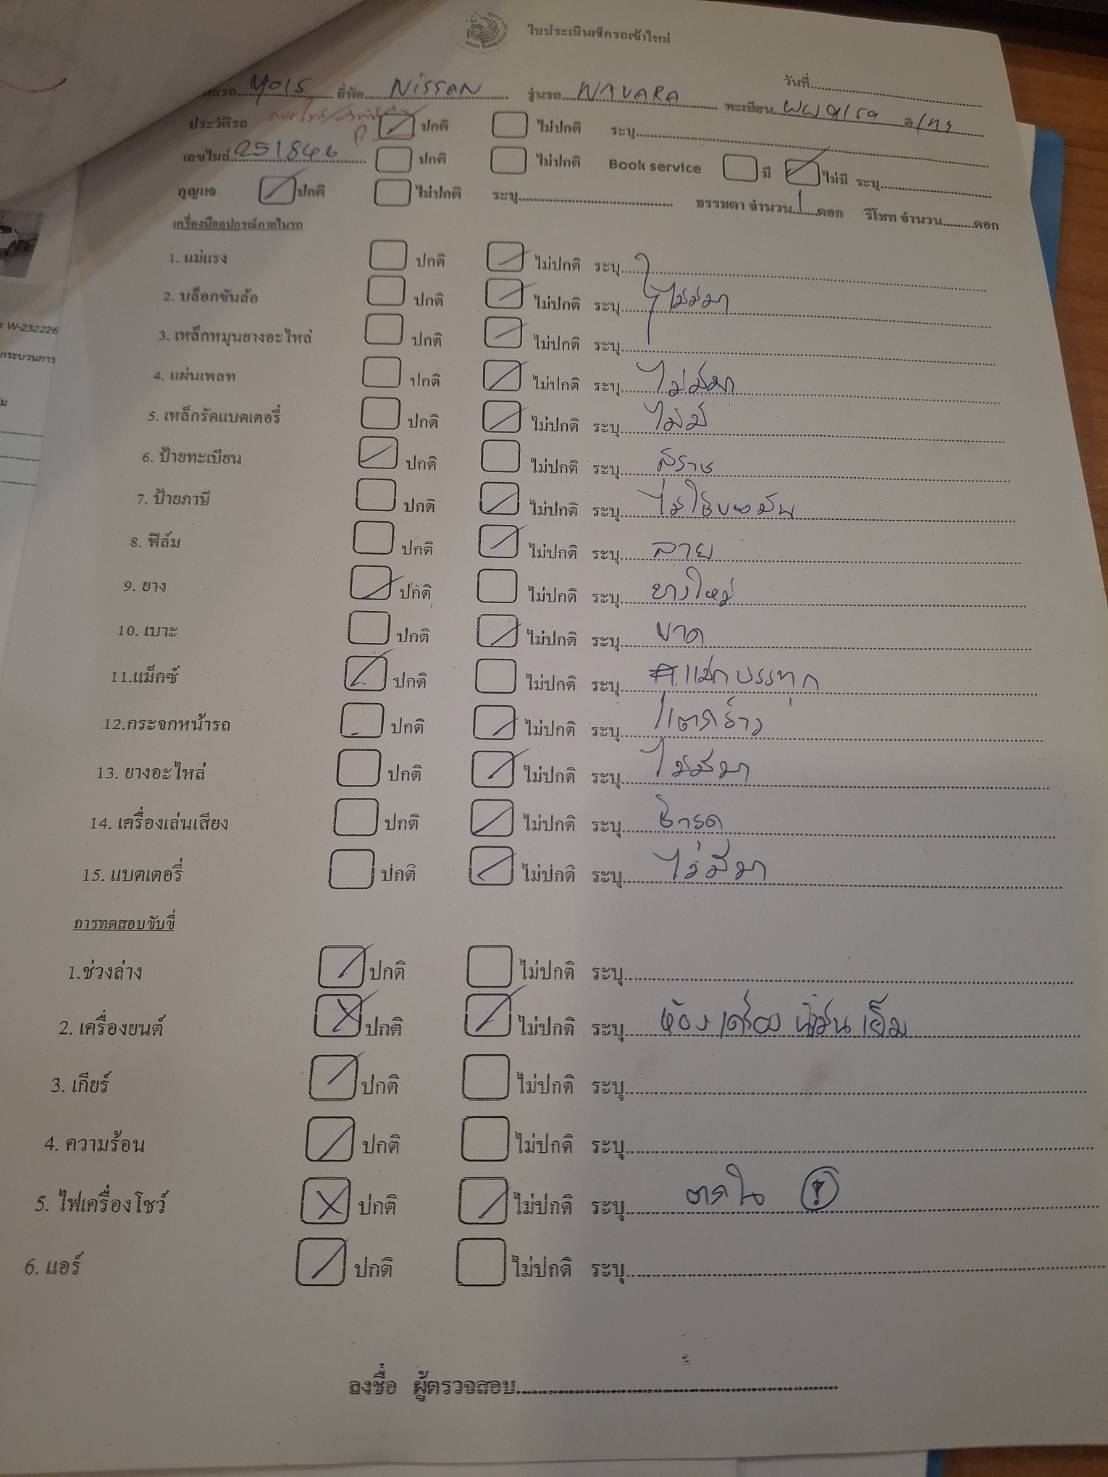 ใบประเมินเช็ครถเข้าใหม่
วันที่
ยี่ห้อ NiSSAN รุ่นรถ NAVARA ทะเบียน
ประวัติรถ ปกติ ไม่ปกติ ระบุ
เลขไมล์ 251846 ปกติ ไม่ปกติ Book service มี ไม่มี ระบุ
กุญแจ ปกติ ไม่ปกติ ระบุ ธรรมดา จำนวน 1 ดอก รีโมท จำนวน ดอก
เครื่องมืออุปกรณ์ภายในรถ
1. แม่แรง ปกติ ไม่ปกติ ระบุ
2. บล็อกขันล้อ ปกติ ไม่ปกติ ระบุ ไม่มีมา
3. เหล็กหมุนยางอะไหล่ ปกติ ไม่ปกติ ระบุ
4. แผ่นเพลท ปกติ ไม่ปกติ ระบุ ไม่มีมา
5. เหล็กรัดแบตเตอรี่ ปกติ ไม่ปกติ ระบุ ไม่มี
6. ป้ายทะเบียน ปกติ ไม่ปกติ ระบุ
7. ป้ายภาษี ปกติ ไม่ปกติ ระบุ ไม่ใช่ของมัน
8. ฟิล์ม ปกติ ไม่ปกติ ระบุ ลาย
9. ยาง ปกติ ไม่ปกติ ระบุ ยางใหม่
10. เบาะ ปกติ ไม่ปกติ ระบุ ขาด
11.แม็กซ์ ปกติ ไม่ปกติ ระบุ แม็กบรรทุก
12.กระจกหน้ารถ ปกติ ไม่ปกติ ระบุ แตกร้าว
13. ยางอะไหล่ ปกติ ไม่ปกติ ระบุ ไม่มีมา
14. เครื่องเล่นเสียง ปกติ ไม่ปกติ ระบุ ชำรุด
15. แบตเตอรี่ ปกติ ไม่ปกติ ระบุ ไม่มีมา
การทดสอบขับขี่
1.ช่วงล่าง ปกติ ไม่ปกติ ระบุ
2. เครื่องยนต์ ปกติ ไม่ปกติ ระบุ ห้องเครื่อง น้ำมันเยิ้ม
3. เกียร์ ปกติ ไม่ปกติ ระบุ
4. ความร้อน ปกติ ไม่ปกติ ระบุ
5. ไฟเครื่องโชว์ ปกติ ไม่ปกติ ระบุ
6. แอร์ ปกติ ไม่ปกติ ระบุ
ลงชื่อ ผู้ตรวจสอบ
W-232226